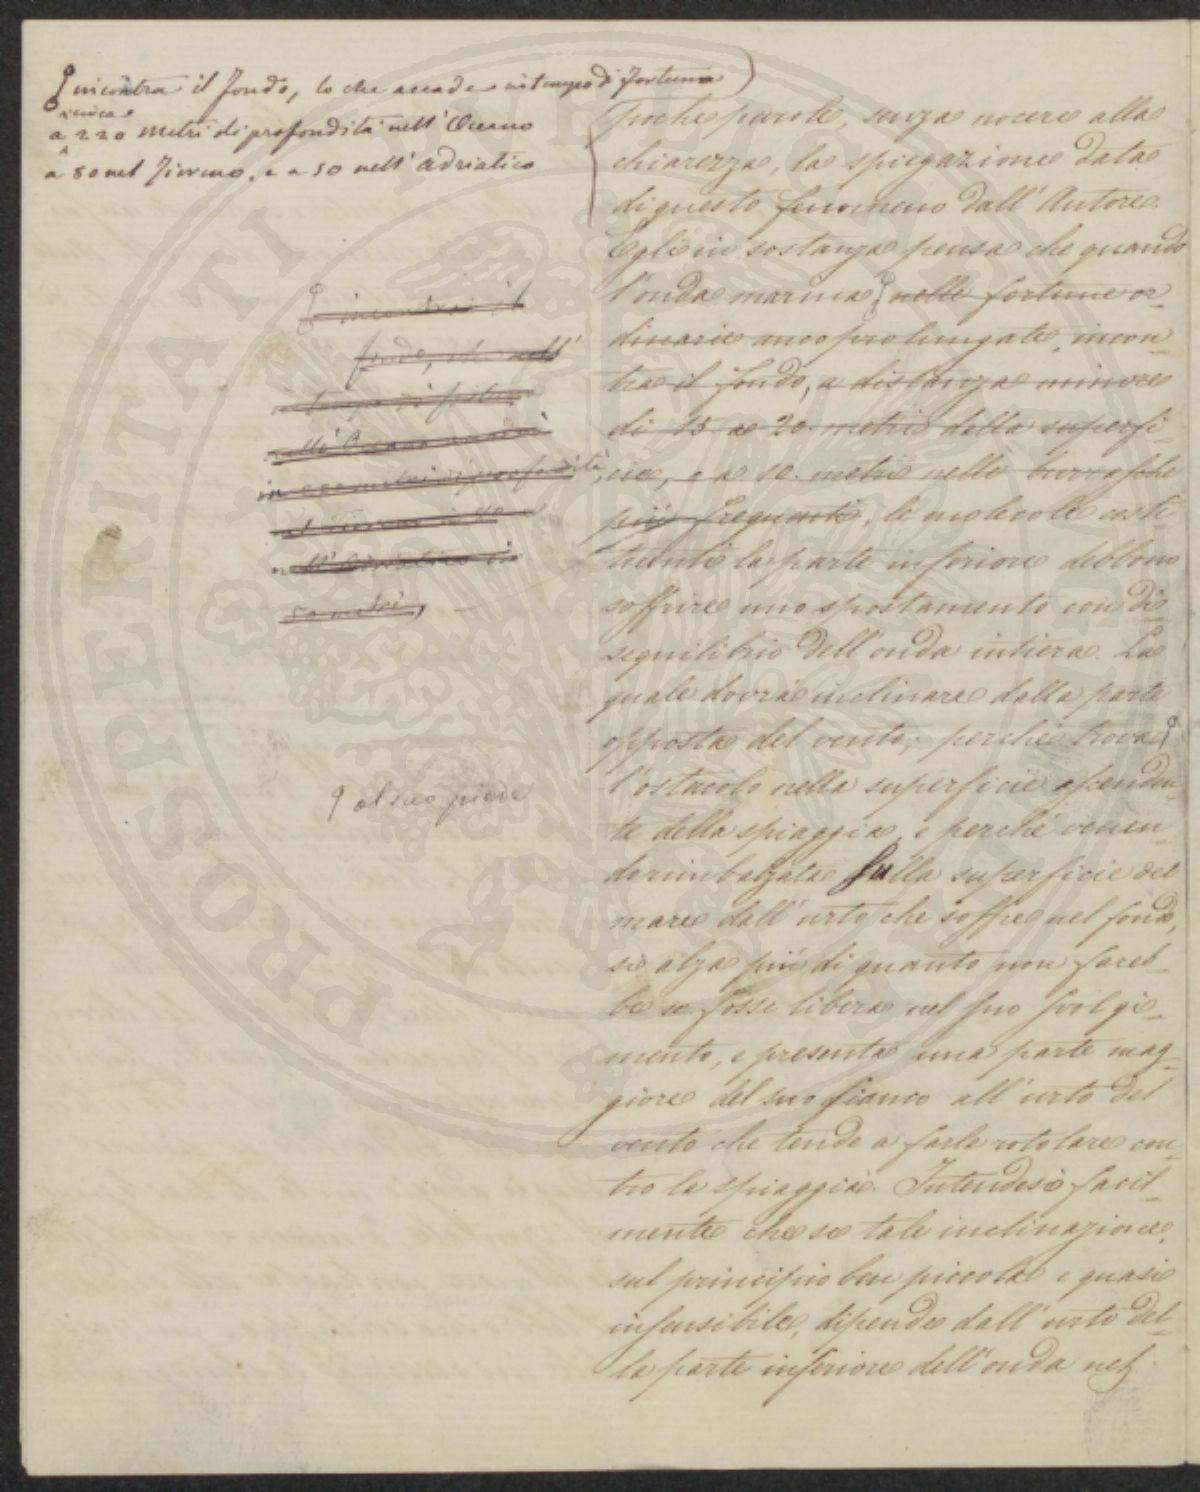 incontra il fondo, lo che accade in tempo di fortuna
circa
a 220 metri di profondità nell' Oceano
a 80 nel Tirreno, e a 50 nell' Adriatico
incontrai il
fondo,
in
50 metri,
al suo piede
poche parole, senza nocere alla
chiarezza, la spiegazione data
di questo fenomeno dall' Autore.
Egli in sostanza pensa che quando
l'onda marina nelle fortune or-
dinarie anco prolungate, incon-
tra il fondo, a distanza minore
di 15 a 20 metri dalla superfi-
cie, e a 10. metri nelle burrasche
più frequenti, le molecole costi-
tuenti la parte inferiore debbono
soffrire uno spostamento con di-
sequilibrio dell' onda intiera. La
quale dovrà inclinare dalla parte
opposta del vento; perché trova
l'ostacolo nella superficie ascenden-
te della spiaggia, e perché venen-
do rimbalzata sulla superficie del
mare dall' urto che soffre nel fondo,
si alza più di quanto non fareb-
be se fosse libera nel suo svolgi-
mento, e presenta una parte mag-
giore del suo fianco all' urto del
vento che tende a farla rotolare con-
tro la spiaggia. Intendesi facil-
mente che se tale inclinazione,
sul principio ben piccola e quasi
insensibile, dipende dall' urto del-
la parte inferiore dell' onda nel
PROSPERITATI